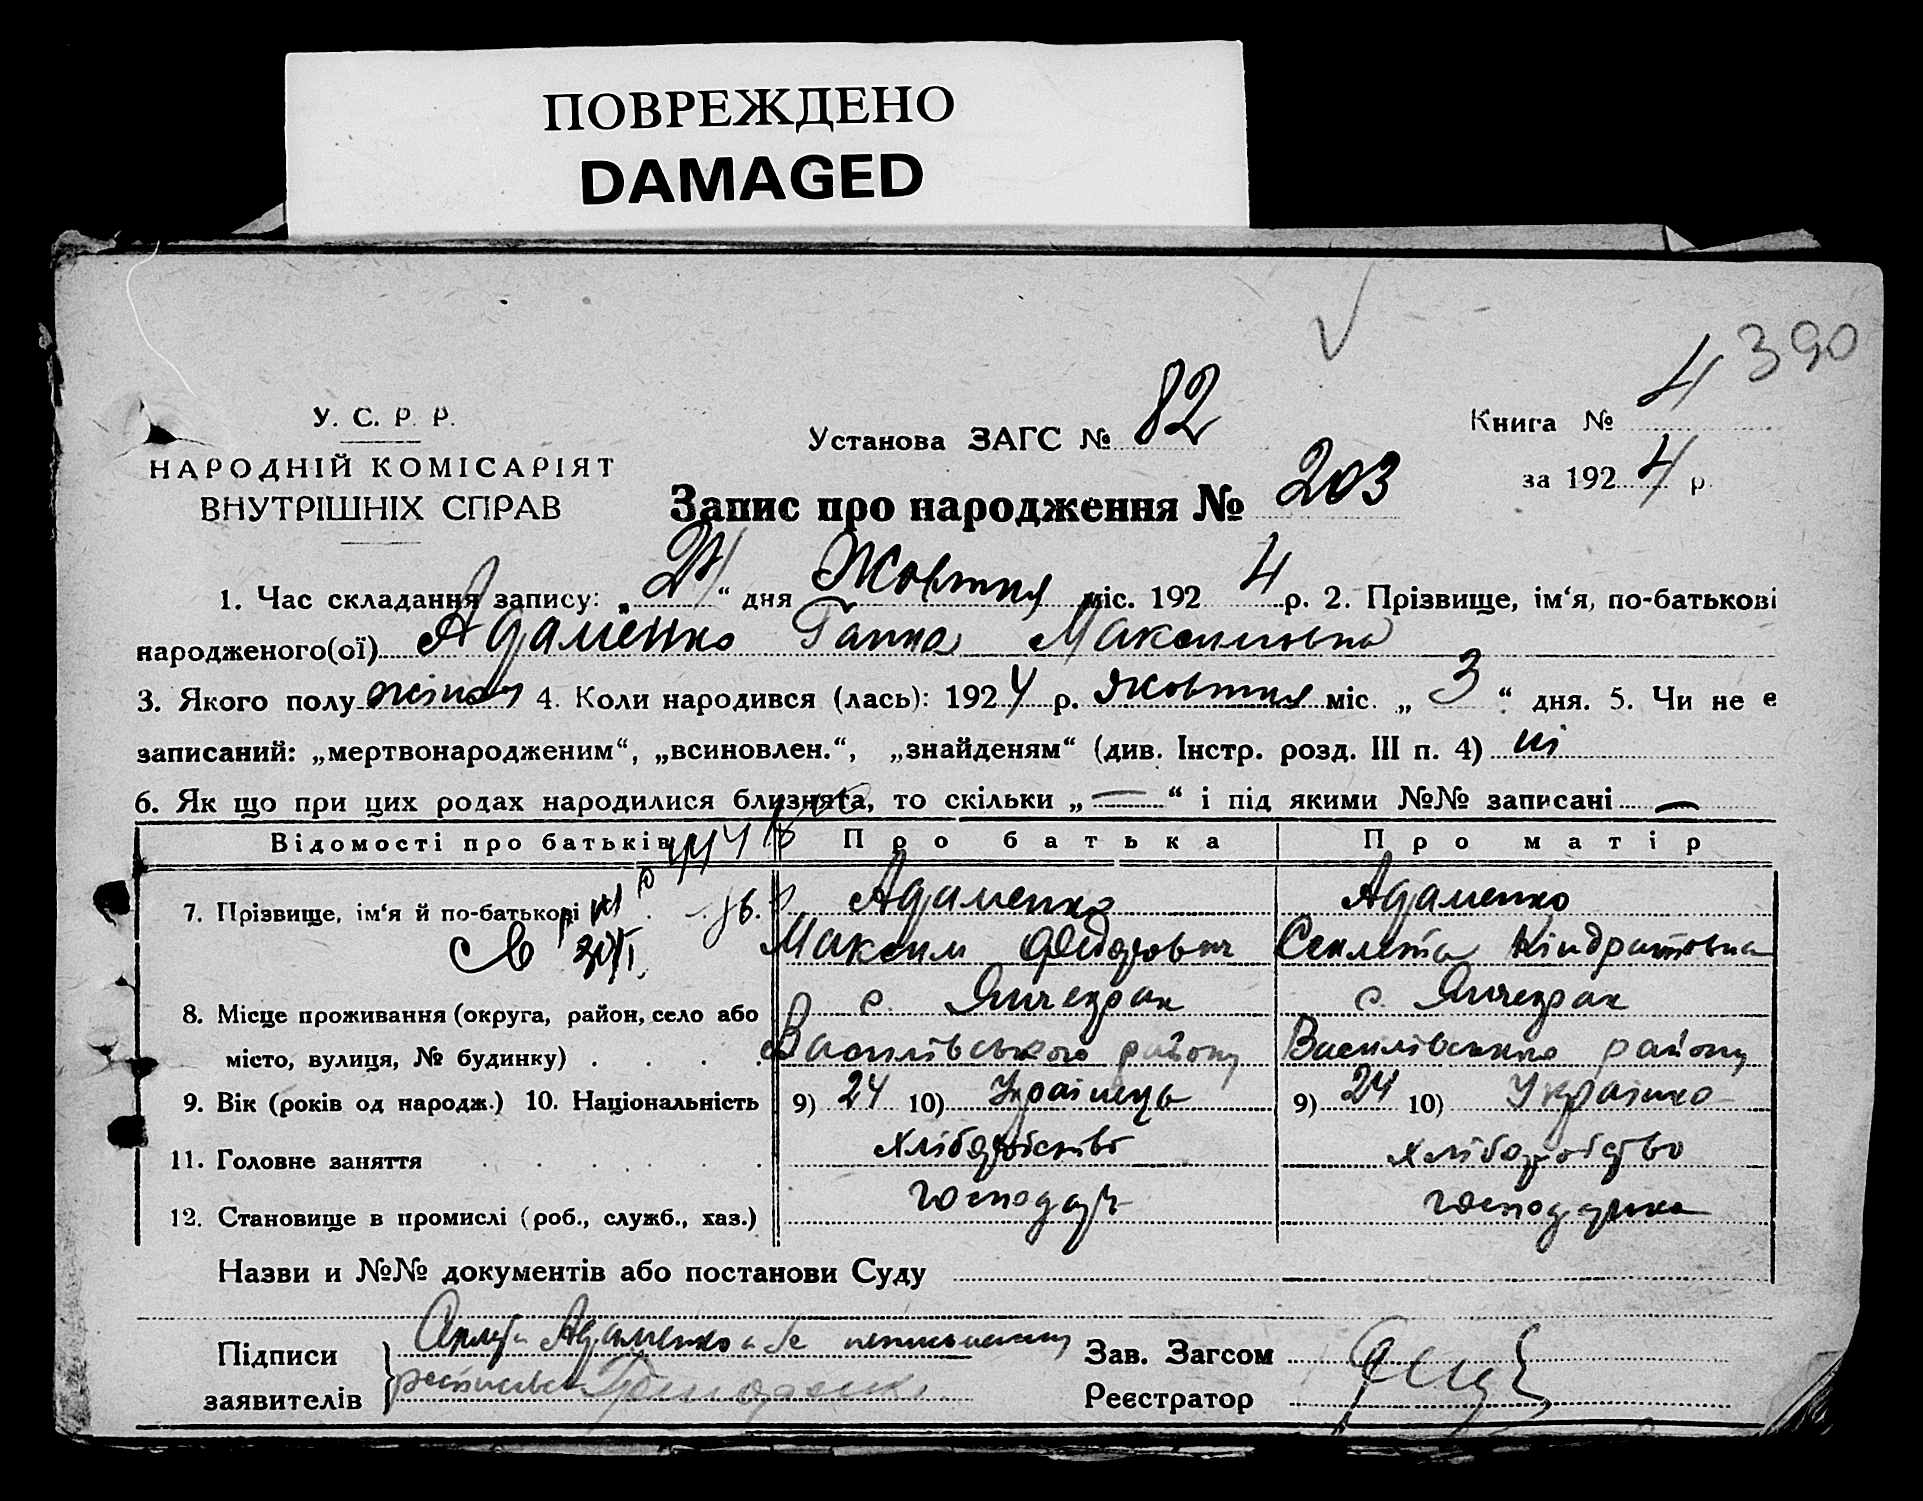 ПОВРЕЖДЕНО
DAMAGED
4 390
У. С. Р. Р.
НАРОДНІЙ КОМІСАРІЯТ
ВНУТРІШНІХ СПРАВ
Установа ЗАГС № 82
Книга № 4
за 1924 р.
Запис про народження № 203
1. Час складання запису: „ “ дня Жовтня міс. 1924 р. 2. Прізвище, ім‘я, по-батькові
народженого(ої) Адаменко Ганна Максимовна
3. Якого полу жіноч 4. Коли народився (лась): 1924 р. жовтня міс. „ 3 “ дня. 5. Чи не є
записаний: „мертвонародженим“, „всиновлен.“, „знайденям“ (див. Інстр. розд. III п. 4) ні
6. Як що при цих родах народилися близнята, то скільки „ — “ і під якими №№ записані —
Відомості про батьків Про батька Про матір
7. Прізвище, ім‘я й по-батькові Адаменко Адаменко
Максим Федорович Кіндратовна
8. Місце проживання (округа, район, село або с. Янчекрак с. Янчекрак
місто, вулиця, № будинку) . . . . Василівського району Василівського району
9. Вік (років од народж.) 10. Національність 9) 24 10) Українець 9) 24 10) Українка
11. Головне заняття . . . . . . хліборобство хліборобство
12. Становище в промислі (роб., служб., хаз.) господар господарка
Назви и №№ документів або постанови Суду
Підписи Адаменко а за неписьменну
заявителів расписався
Зав. Загсом
Реєстратор